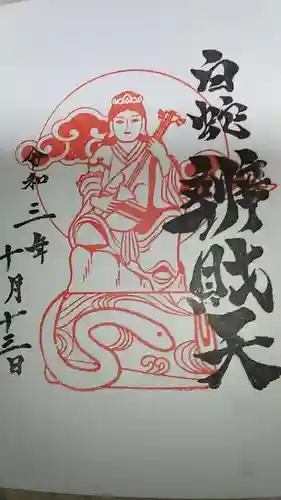 白蛇
辨財天
令和三年
十月十三日